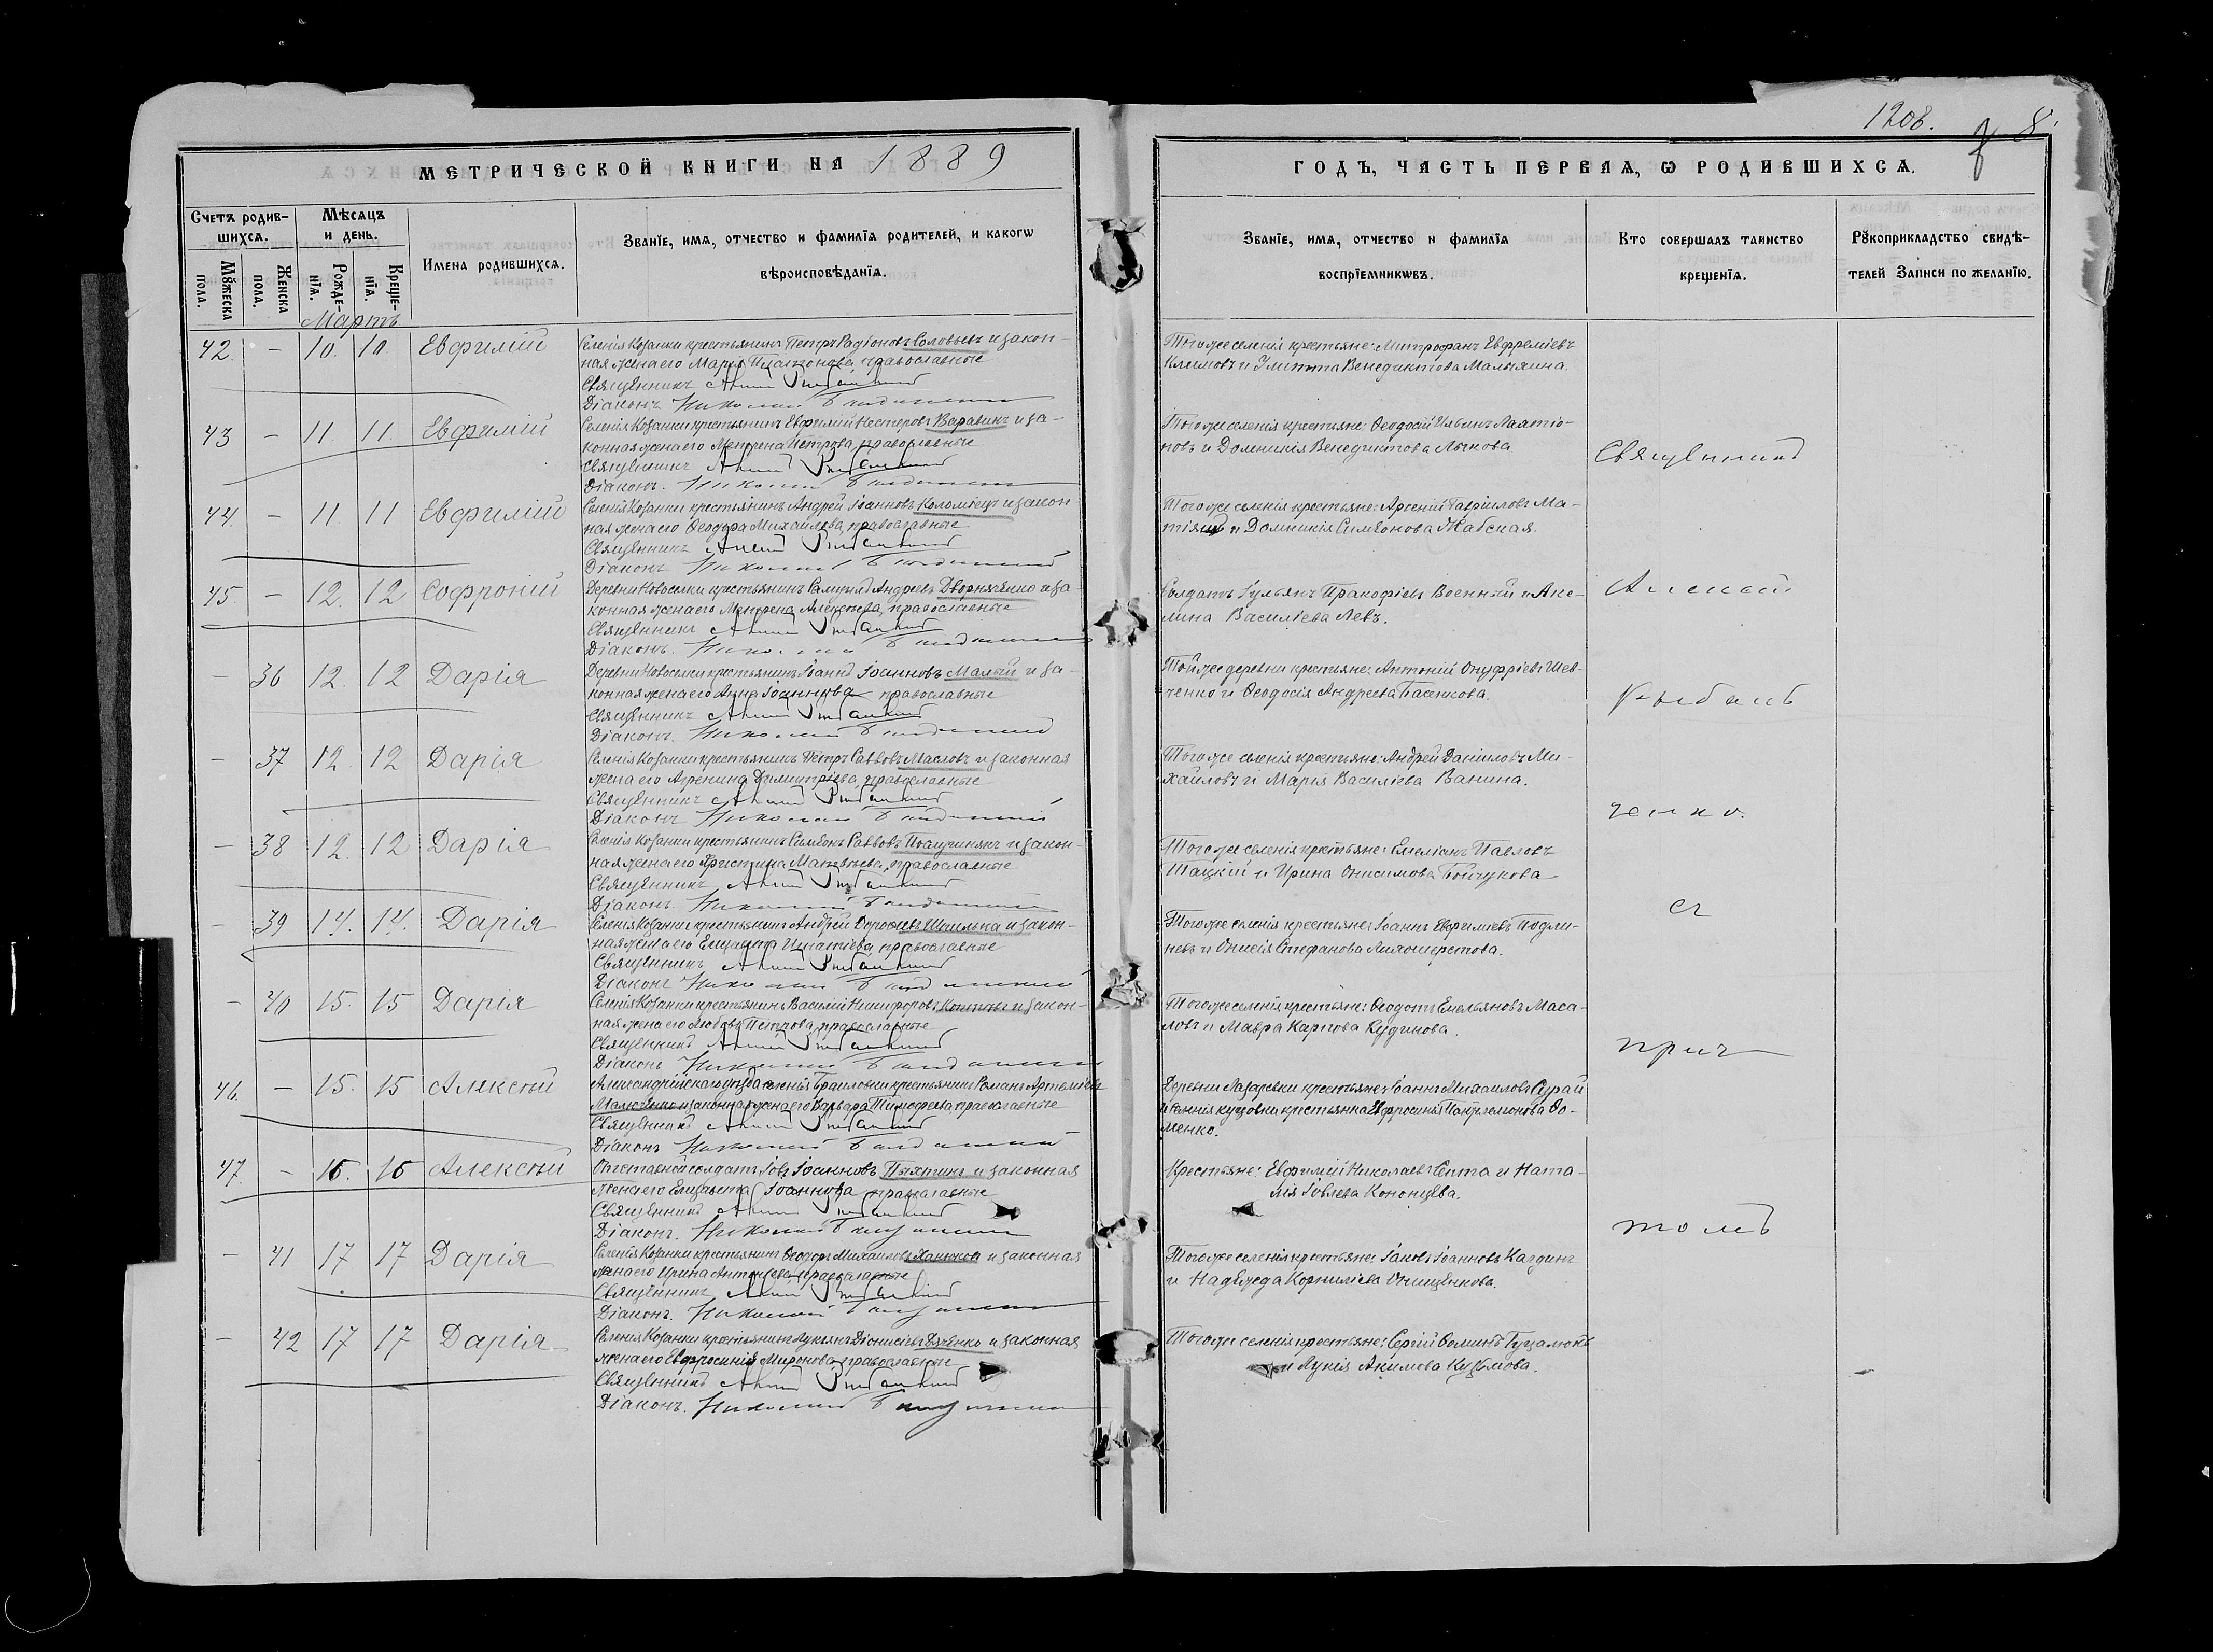 1208.
8
МЕТРИЧЕСКОЙ КНИГИ НА 1889
ГОДЪ, ЧАСТЬ ПЕРВАЯ, Ѡ РОДИВШИХСѦ.
Счетъ родив-
шихсѧ.
Мѣсѧцъ
и день.
Мꙋжеска
пола.
Женска
пола.
Рожде-
нїѧ.
Креще-
нїѧ.
Имена родившихсѧ.
Званїе, имѧ, отчество и фамилїѧ родителей, и какогѡ
вѣроисповѣданїѧ.
Званїе, имѧ, отчество и фамилїѧ
воспрїемникѡвъ.
Кто совершалъ таинство
крещенїѧ.
Рꙋкоприкладство свидѣ-
телей записи по желанїю.
Мартъ
42. – 10. 10. Евфимій
Селенія Козанки крестьянинъ Петръ Родіоновъ Соловьевъ и закон-
ная жена его Марія православные
Священникъ
Діаконъ Николай
Того же селенія крестьяне: Митрофанъ Евфреміевъ
Климовъ и Улитта Венедиктова Малыхина.
43 – 11. 11. Евфимій
Селенія Козанки крестьянинъ Евфимій Нестеровъ Варавинъ и за-
конная жена его Матрена Петрова, православные
Священникъ
Діаконъ. Николай
Того же селенія крестьяне: Ѳеодосій Ильинъ Лактіо-
новъ и Домникія Венедиктова Лыкова
44. – 11. 11 Евфимій
Селенія Козанки крестьянинъ Андрей Іоанновъ Коломіецъ и закон-
ная жена его Ѳеодора Михайлова, православные
Священникъ
Діаконъ Николай
Того же селенія крестьяне: Арсеній Гавриловъ Ма-
и Домникія Симеонова Жабская.
45. – 12. 12 Софроній
Деревни Новоселки крестьянинъ Самуилъ Андреевъ Дворниченко и за-
конная жена его Матрена Алексеева, православные
Священникъ
Діаконъ. Николай
Солдатъ Іульянъ Прокофіевъ Военный и Аку-
лина Василіева Левъ.
– 36 12. 12 Дарія
Деревни Новоселки крестьянинъ Іоаннъ Іоанновъ Малый и за-
конная жена его Анна Іоаннова православные
Священникъ
Діаконъ. Николай
Той же деревни крестьяне: Антоній Онуфріевъ Шев-
ченко и Ѳеодосія Андреева Басенкова.
– 37 12. 12 Дарія
Селенія Козанки крестьянинъ Петръ Саввовъ Масловъ и законная
жена его Димитріева, православные
Священникъ
Діаконъ Николай
Того же селенія крестьяне: Андрей Даниловъ Ми-
хайловъ и Марія Василіева Ванина.
– 38 12. 12 Дарія
Селенія Козанки крестьянинъ Симеонъ Саввовъ и закон-
ная жена его Христина Матвѣева, православные
Священникъ
Діаконъ. Николай
Того же селенія крестьяне: Емеліанъ Павловъ
Тацкій и Ирина Онисимова Бойчукова
– 39 14. 14. Дарія
Селенія Козанки крестьянинъ Андрей Шпилька и закон-
ная жена его Елизавета Игнатіева, православные
Священникъ
Діаконъ Николай
Того же селенія крестьяне: Іоаннъ Евфиміевъ Подли-
невъ и Онисія Стефанова Лихошерстова.
– 40 15. 15 Дарія
Селенія Козанки крестьянинъ Василій Никифоровъ и закон-
ная жена его Любовь Петрова, православные
Священникъ
Діаконъ Николай
Того же селенія крестьяне: Ѳеодотъ Емельяновъ Маса-
ловъ и Мавра Карпова Кудинова.
46. – 15. 15 Алексѣй
Александрійскаго уѣзда селенія крестьянинъ Романъ Артеміевъ
и законная жена его Варвара Тимофеева православные
Священникъ
Діаконъ Николай
Деревни Лазаревки крестьяне: Іоаннъ Михаиловъ Сурай
и селенія крестьянка Евфросинія Пантелеимонова Ѳо-
менко.
47. – 16. 16 Алексѣй
Отставной солдатъ Іовъ Іоанновъ Пыхтинъ и законная
жена его Елизавета Іоаннова православные
Священникъ
Діаконъ. Николай
Крестьяне: Евфимій Николаевъ Септа и Ната-
лія Іовлева Кононцева.
– 41 17 17 Дарія
Селенія Козанки крестьянинъ Ѳеодоръ Михаиловъ и законная
жена его Ирина Антонієва православные
Священникъ
Діаконъ. Николай
Того же селенія крестьяне: Іаковъ Іоанновъ Калдинъ
и Надежда Корниліева Онищенкова.
– 42 17 17 Дарія
Селенія Козанки крестьянинъ Лукьянъ Діонисіевъ Дяченко и законная
жена его Евфросинія Миронова православные
Священникъ
Діаконъ. Николай
Того же селенія крестьяне: Сергій Ѳоминъ
и Лукія Акимова Кузьмова.
Священникъ
Алексій
Рыбаль
ченко.
съ
прич
томъ